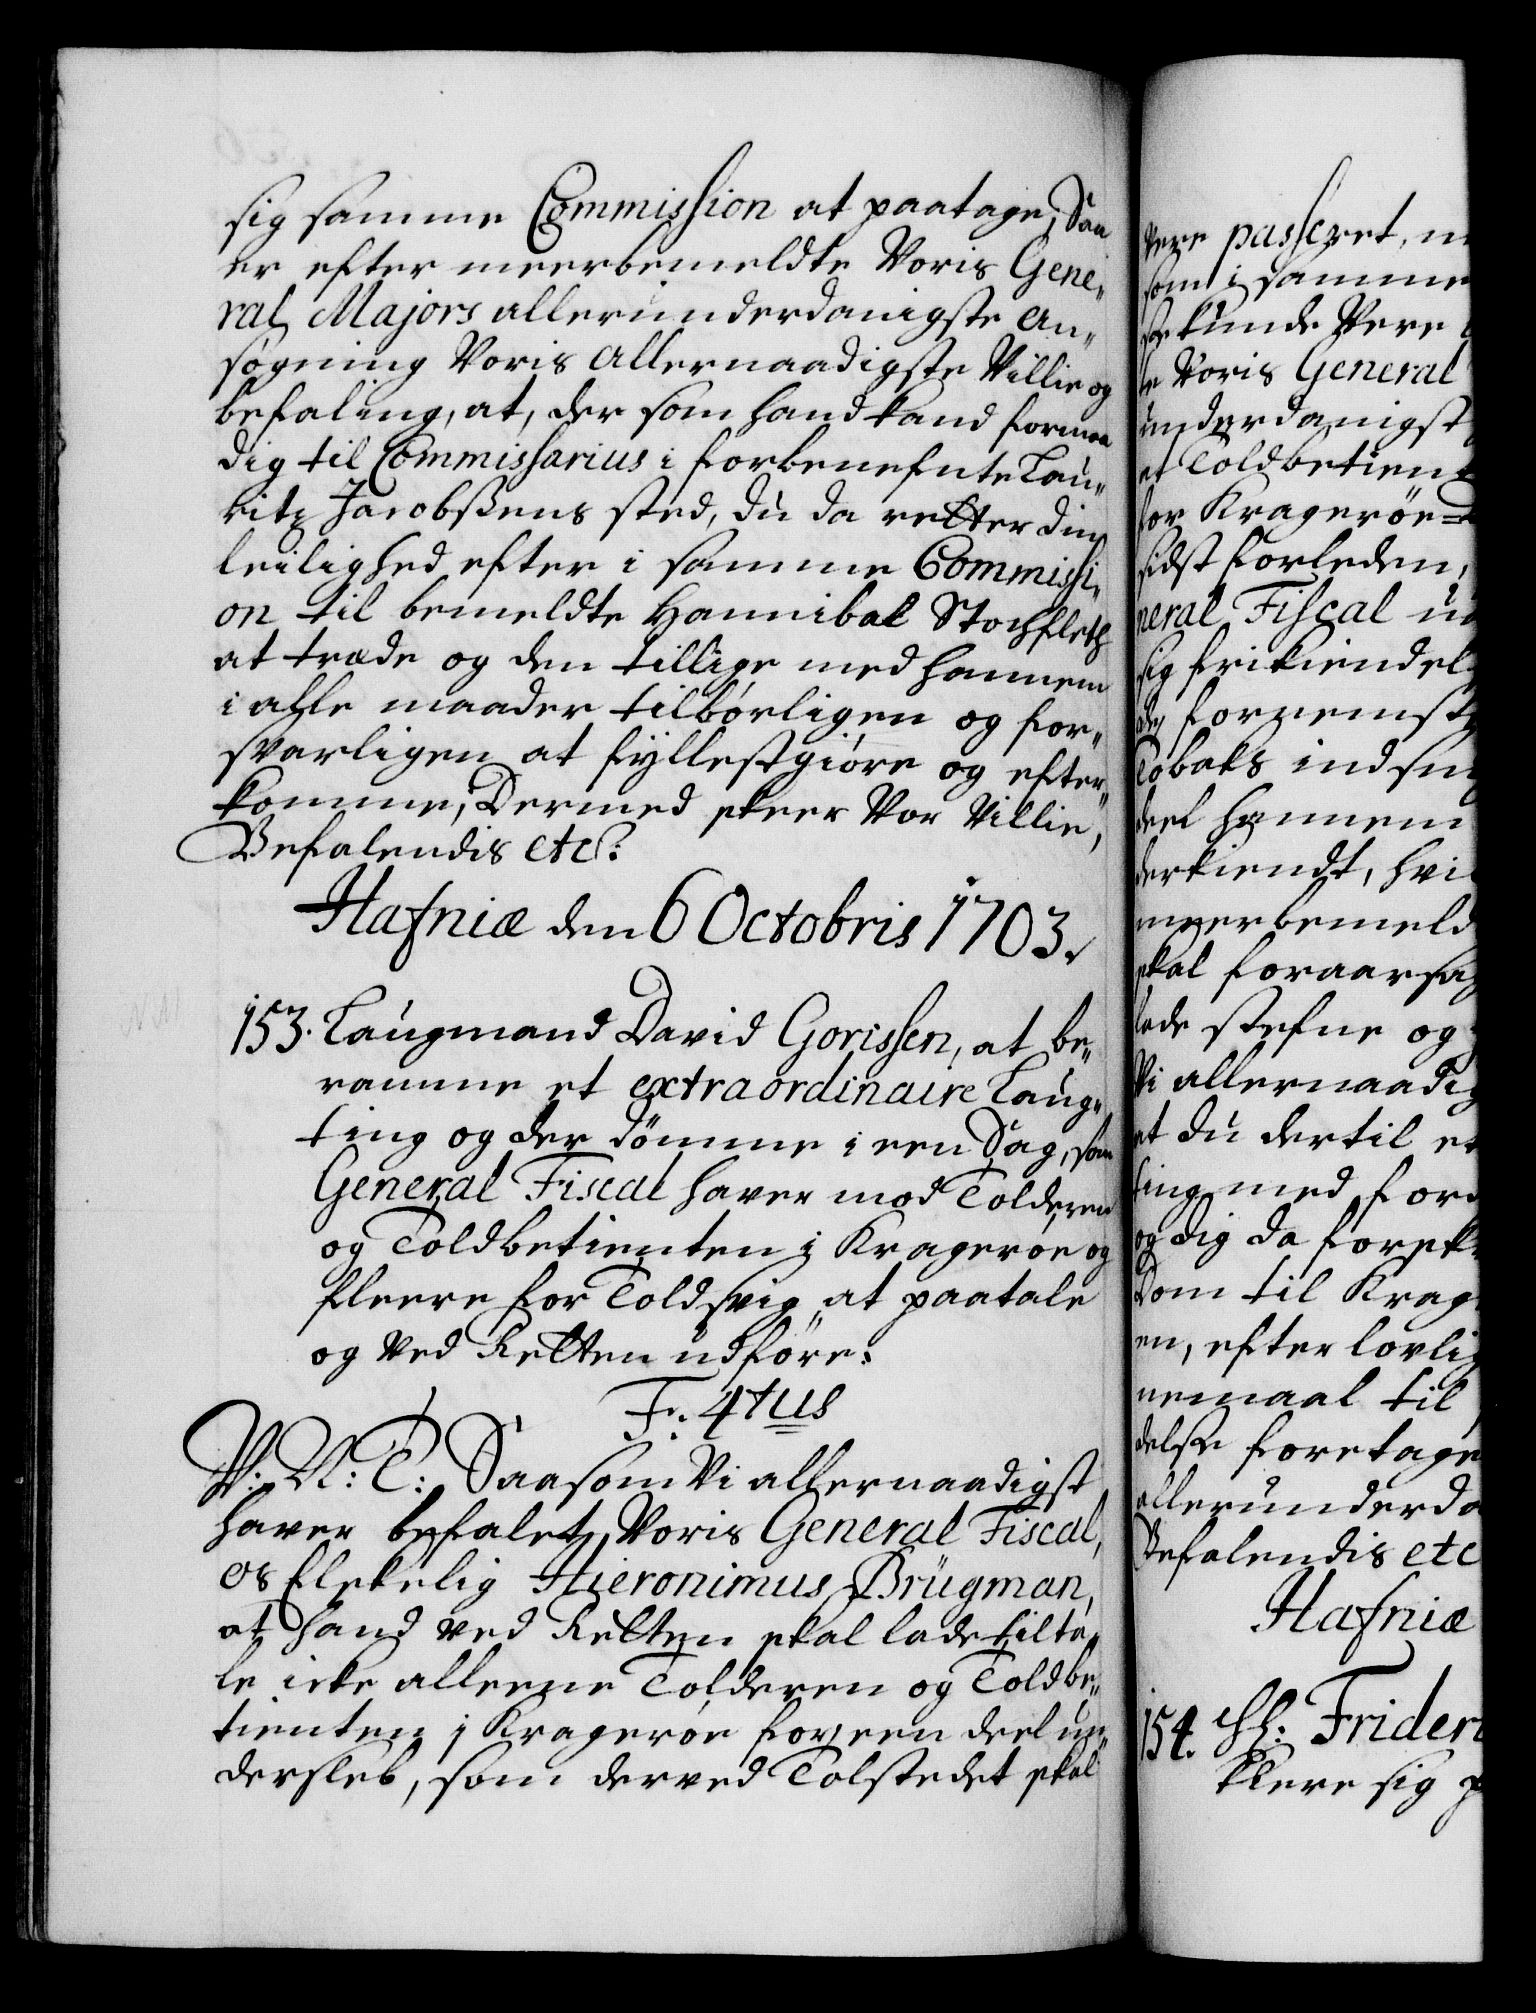 sig samme Commission at paatage, Saa
er efter meerbemeldte Voris Gene„
ral Majors allerunderdanigste An„
søgning Voris Allernaadigste Villie og
befaling, at, der som hand kand formaa
dig til Commissarius i forbenefnte Lau„
ritz Jacobßens sted, du da retter din
leilighed efter i samme Commissi„
on til bemeldte Hannibal Stochfleth
at træde og den tillige med hannem
i alle maader tilbørligen og for„
svarligen at fyllestgiøre og efter„
komme, Dermed skeer Vor Villie,
Befalendis etc:
Hafniæ den 6 Octobris 1703.
153. Laugmand David Gorissen, at be„
ramme et extraordinaire Laug„
ting og der dømme i een Sag, som
General Fiscal haver mod Tolderen
og Toldbetienten i Kragerøe og
fleere for Toldsvig, at paatale
og ved Retten udføre.
F. 4tus
V. A: T: Saasom Vi allernaadigst
haver befalet, Voris General Fiscal,
os Elskelig Hieronimus Brügman,
at hand ved Retten skal lade tilta„
le icke alleene Tolderen og Toldbe„
tienten i Kragerøe for een deel un„
dersleb, som derved Tolstedet skal
være passeret,
som i samme
kunde være
Voris General
underdanigst
at Toldbetient
for Kragerøe
sidst forleden,
neral Fiscal
sig frikiendel
fornemst
Tobaks indsm
deel hannem
derkiendt, hvi
meerbemeld
skal foraarsag
lade stefne og
Vi allernaadig
at du dertil et
ting med for
og dig da forek
Dom til Krag
en, efter lovlig
nemaal til
delse foretage
allerunderda
Befalendis etc
Hafniæ
154. Hl: Frideri
klere sig p